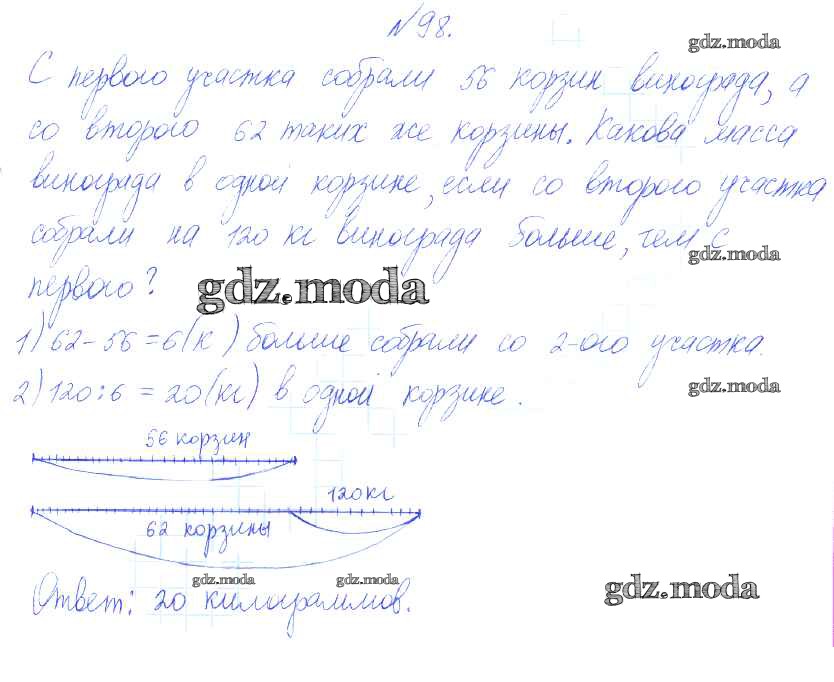 №98.
gdz.moda
С первого участка собрали 56 корзин винограда, а
со второго 62 таких же корзины. Какова масса
винограда в одной корзине, если со второго участка
собрали на 120 кг винограда больше, чем с
gdz.moda
первого?
gdz.moda
1) 62-56=6(к) больше собрали со 2-ого участка.
2) 120:6=20(кг) в одной корзине.
gdz.moda
56 корзин
120кг
62 корзины
gdz.moda gdz.moda
gdz.moda
Ответ: 20 килограммов.